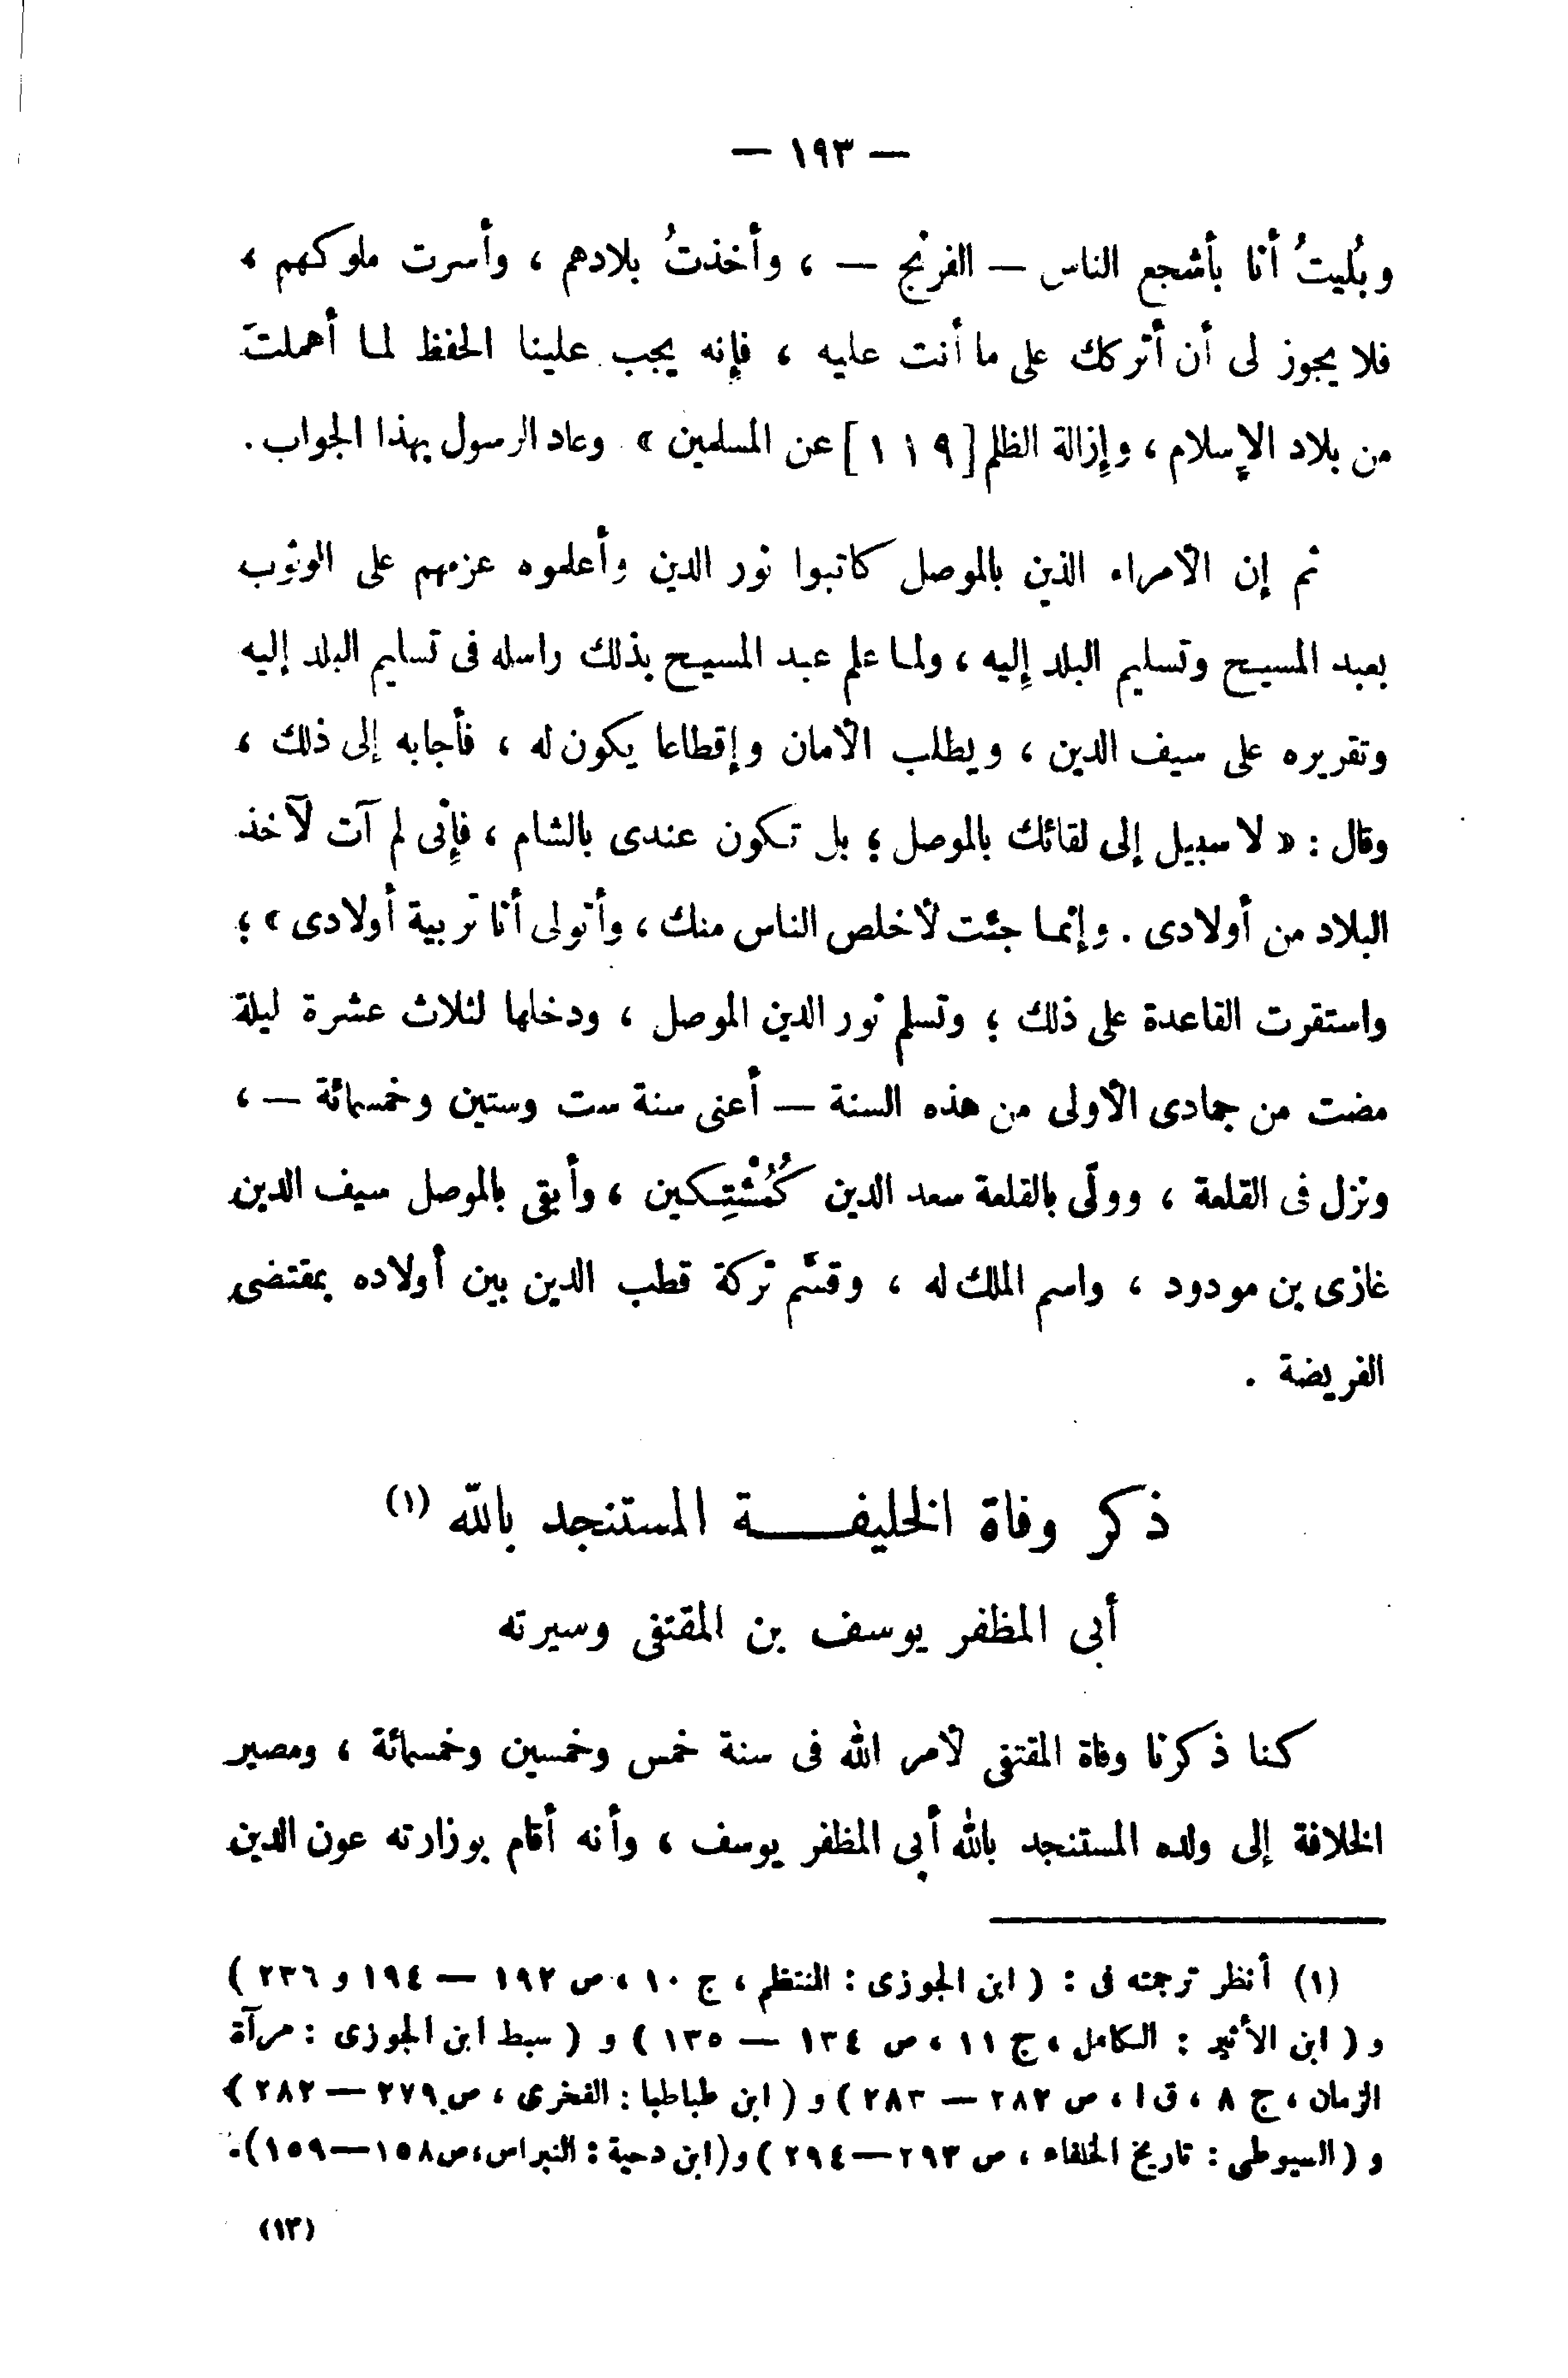 — ١٩٣ —
وبُليتُ أنا بأشجع الناس — الفرنج — ، وأخذتُ بلادهم ، وأسرت ملوكهم ،
فلا يجوز لى أن أتركك على ما أنت عليه ، فإنه يجب علينا الحفظ لما أهملتَ
من بلاد الإسلام ، وإزالة الظلم [١١٩] عن المسلمين » وعاد الرسول بهذا الجواب .
ثم إن الأمراء الذين بالموصل كاتبوا نور الدين وأعلموه عزمهم على الوثوب
بعبد المسيح وتسليم البلد إليه ، ولما علم عبد المسيح بذلك راسله فى تسليم البلد إليه
وتقريره على سيف الدين ، ويطلب الأمان وإقطاعا يكون له ، فأجابه إلى ذلك ،
وقال : « لا سبيل إلى لقائك بالموصل ؛ بل تكون عندى بالشام ، فإنى لم آت لآخذ
البلاد من أولادى . وإنما جئت لأخلص الناس منك ، وأتولى أنا تربية أولادى » ؛
واستقرت القاعدة على ذلك ؛ وتسلم نور الدين الموصل ، ودخلها لثلاث عشرة ليلة
مضت من جمادى الأولى من هذه السنة — أعنى سنة ست وستين وخمسمائة — ،
ونزل فى القلعة ، وولّى بالقلعة سعد الدين كُمُشْتِكين ، وأبقى بالموصل سيف الدين
غازى بن مودود ، واسم الملك له ، وقسَّم تركة قطب الدين بين أولاده بمقتضى
الفريضة .
ذكر وفاة الخليفـــة المستنجد بالله (١)
أبى المظفر يوسف بن المقتفى وسيرته
كنا ذكرنا وفاة المقتفى لأمر الله فى سنة خمس وخمسين وخمسمائة ، ومصير
الخلافة إلى ولده المستنجد بالله أبى المظفر يوسف ، وأنه أقام بوزارته عون الدين
(١) أنظر ترجمته فى : ( ابن الجوزى : المنتظم ، ج ١٠ ، ص ١٩٢ — ١٩٤ و ٢٣٦ )
و ( ابن الأثير : الكامل ، ج ١١ ، ص ١٣٤ — ١٣٥ ) و ( سبط ابن الجوزى : مرآة
الزمان ، ج ٨ ، ق ١ ، ص ٢٨٢ — ٢٨٣ ) و ( ابن طباطبا : الفخرى ، ص ٢٧٩ — ٢٨٢ )
و ( السيوطى : تاريخ الخلفاء ، ص ٢٩٣—٢٩٤ ) و(ابن دحية : النبراس،ص١٥٨—١٥٩).
(١٣)